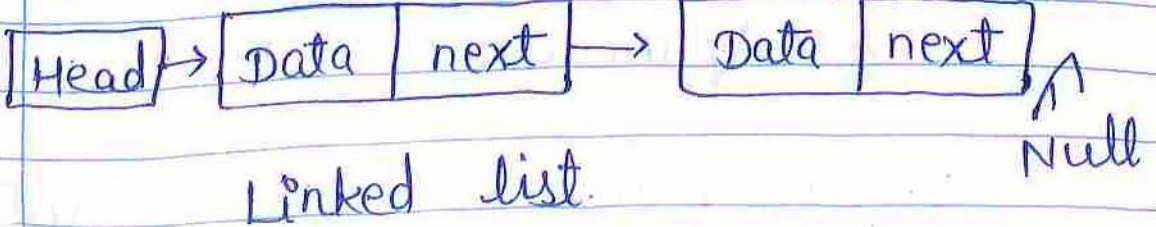 Head Data next Data next
Null
Linked list.